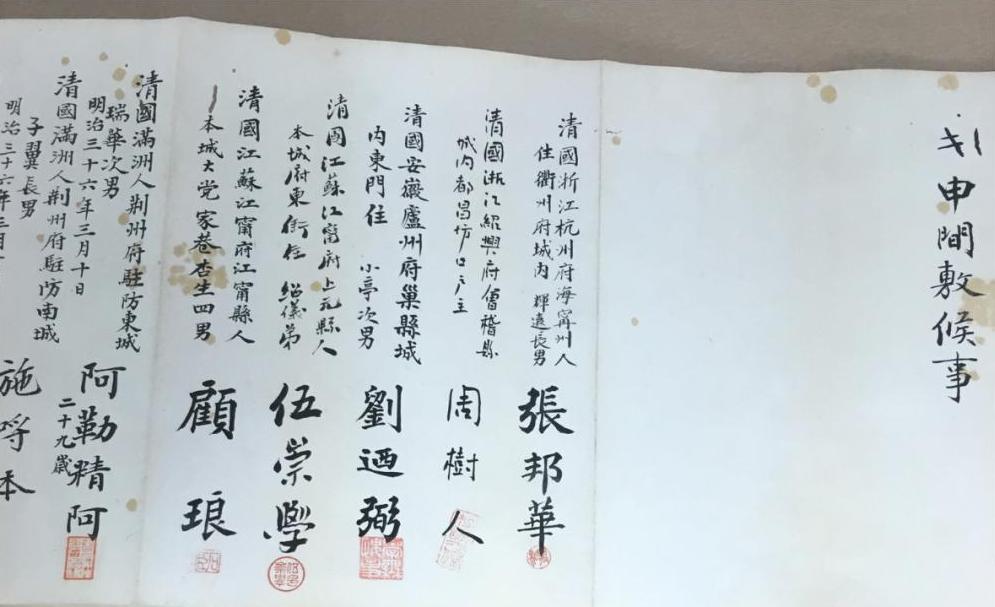 申間敷候事
清國浙江杭州府海甯州人
住衢州府城内 輝遠長男
張邦華
清國浙江紹興府會稽縣
城内都昌坊口戸主
周樹人
清國安徽廬州府巢縣城
内東門住 小亭次男
劉迺弼
清國江蘇江甯府上元縣人
本城府東街住 紹儀弟
伍崇學
清國江蘇江甯府江甯縣人
本城大党家巷杏生四男
顧琅
清國滿洲人荊州府駐防東城
瑞華次男
明治三十六年三月十日
阿勒精阿
二十九歳
清國滿洲人荊州府駐防南城
子翼長男
明治三十六年三月
施呼本